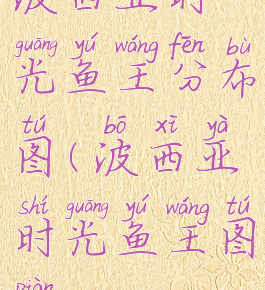 波西亚时
guāng yú wáng fēn bù
光鱼王分布
tú bō xī yà
图(波西亚
shí guāng yú wáng tú
时光鱼王图
piàn